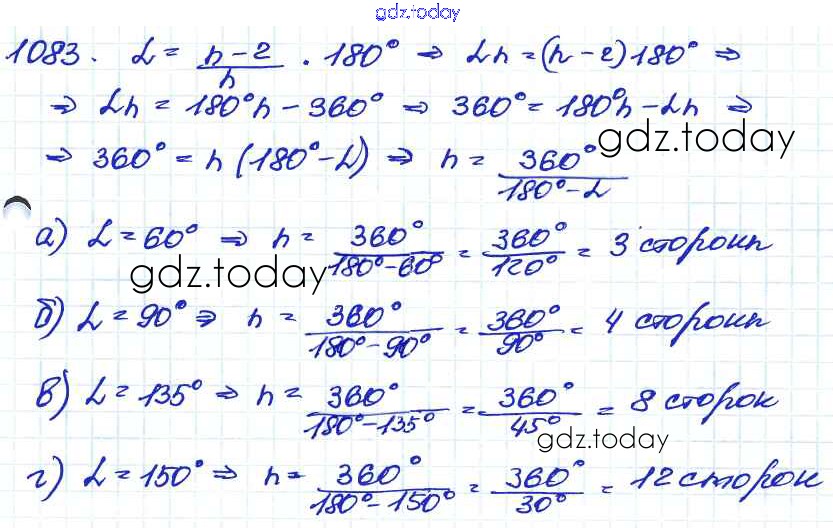 gdz.today
1083. α = (n-2)/n · 180° ⇒ αn = (n-2)180° ⇒
⇒ αn = 180°n - 360° ⇒ 360° = 180°n - αn ⇒
gdz.today
⇒ 360° = n(180° - α) ⇒ n = 360°/(180° - α)
а) α = 60° ⇒ n = 360°/(180° - 60°) = 360°/120° = 3 стороны
gdz.today
б) α = 90° ⇒ n = 360°/(180° - 90°) = 360°/90° = 4 стороны
в) α = 135° ⇒ n = 360°/(180° - 135°) = 360°/45° = 8 сторон
gdz.today
г) α = 150° ⇒ n = 360°/(180° - 150°) = 360°/30° = 12 сторон